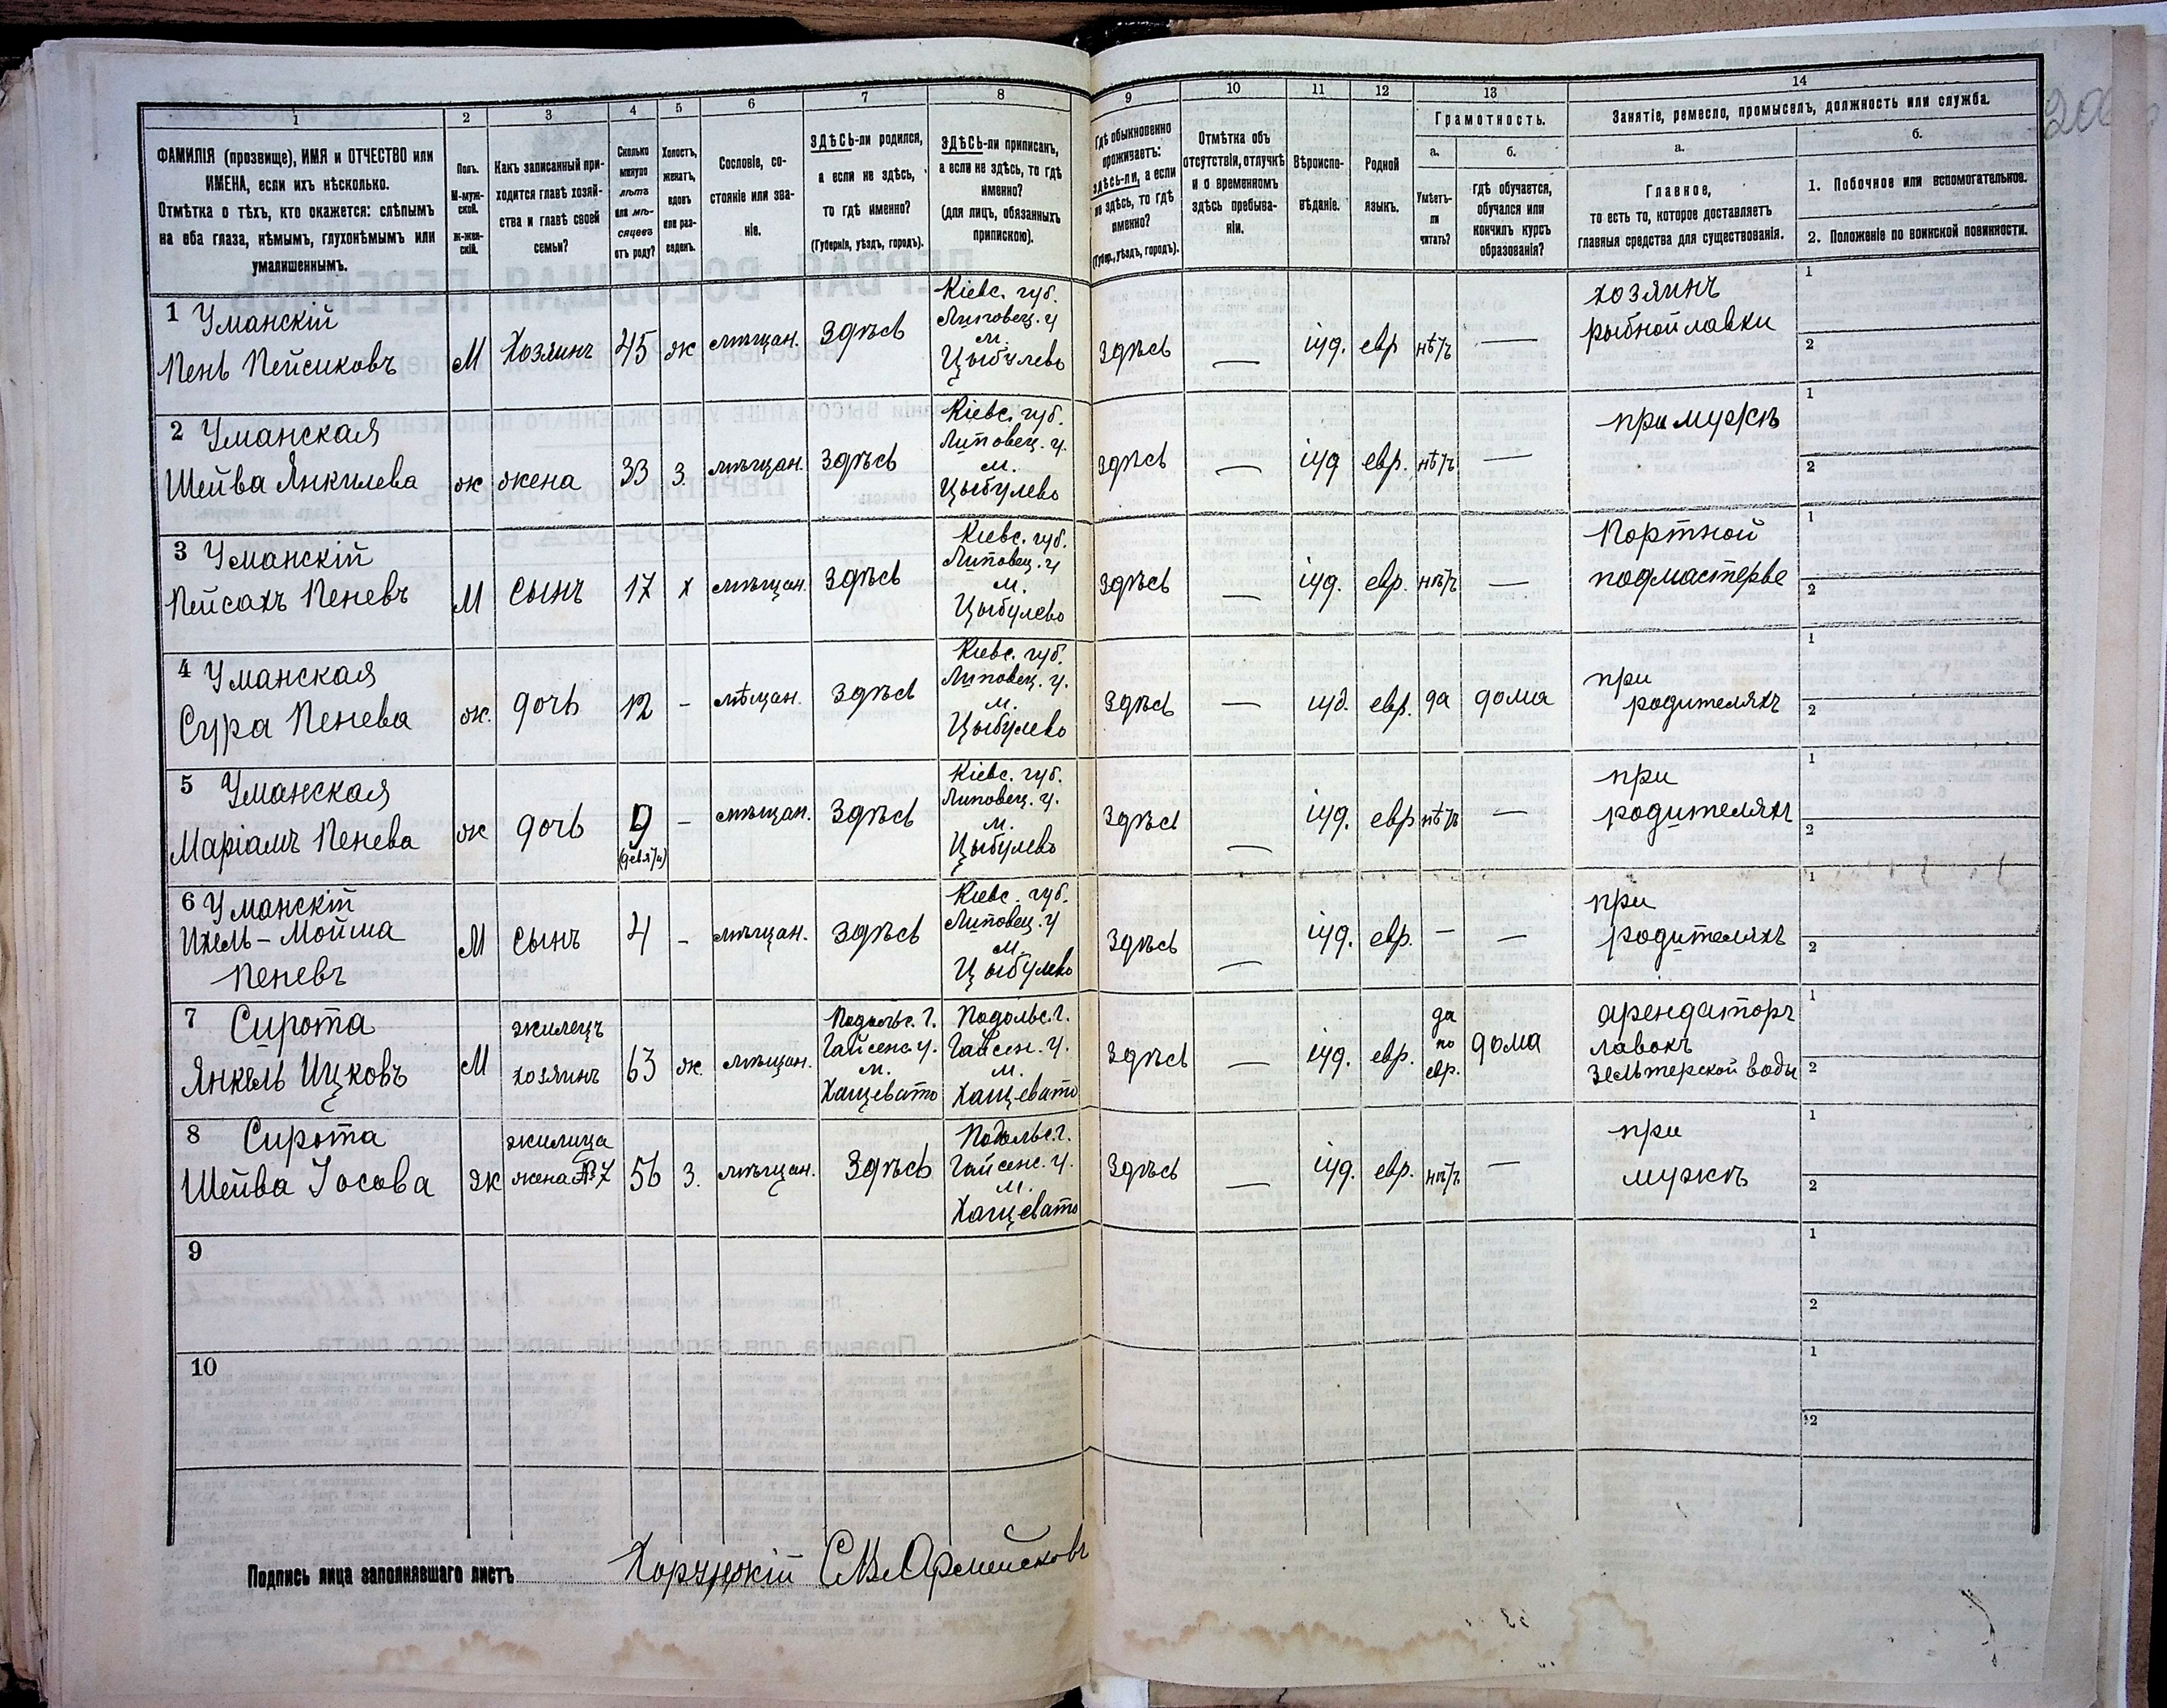 1 2 3 4 5 6 7 8 9 10 11 12 13 14
ФАМИЛІЯ (прозвище), ИМЯ и ОТЧЕСТВО или
ИМЕНА, если ихъ нѣсколько.
Отмѣтка о тѣхъ, кто окажется: слѣпымъ
на оба глаза, нѣмымъ, глухонѣмымъ или
умалишеннымъ.
Полъ.
М-муж-
ской.
Ж-жен-
скій.
Какъ записанный при-
ходится главѣ хозяй-
ства и главѣ своей
семьи?
Сколько
минуло
лѣтъ
или мѣ-
сяцевъ
отъ роду?
Холостъ,
женатъ,
вдовъ
или раз-
веденъ.
Сословіе, со-
стояніе или зва-
ніе.
ЗДѢСЬ-ли родился,
а если не здѣсь,
то гдѣ именно?
(Губернія, уѣздъ, городъ).
ЗДѢСЬ-ли приписанъ,
а если не здѣсь, то гдѣ
именно?
(для лицъ, обязанныхъ
припискою).
Гдѣ обыкновенно
проживаетъ:
здѣсь-ли, а если
не здѣсь, то гдѣ
именно?
(Губер., уѣздъ, городъ).
Отмѣтка объ
отсутствіи, отлучкѣ
и о временномъ
здѣсь пребыва-
ніи.
Вѣроиспо-
вѣданіе.
Родной
языкъ.
Грамотность.
а.
Умѣетъ-
ли
читать?
б.
гдѣ обучается,
обучался или
кончилъ курсъ
образованія?
Занятіе, ремесло, промыселъ, должность или служба.
а.
Главное,
то есть то, которое доставляетъ
главныя средства для существованія.
б.
1. Побочное или вспомогательное.
2. Положеніе по воинской повинности.
1 Уманскій
Пень Пейсиковъ
М
Хозяинъ
45
ж
мѣщан.
Здѣсь
Кіевс. губ.
Липовец. у
м.
Цыбулево
Здѣсь
—
іуд.
евр
нѣтъ
—
хозяинъ
рыбной лавки
1
2
2 Уманская
Шейва Янкилева
ж
жена
33
з.
мѣщан.
Здѣсь
Кіевс. губ.
Липовец. у.
м.
Цыбулево
Здѣсь
—
іуд
евр.
нѣтъ
—
при мужѣ
1
2
3 Уманскій
Пейсахъ Пеневъ
М
сынъ
17
х
мѣщан.
Здѣсь
Кіевс. губ.
Липовец. у
м.
Цыбулево
Здѣсь
—
іуд.
евр.
нѣтъ
—
Портной
подмастерье
1
2
4 Уманская
Сура Пенева
ж.
дочь
12
-
мѣщан.
Здѣсь
Кіевс. губ.
Липовец. у.
м.
Цыбулево
Здѣсь
—
іуд.
евр.
да
дома
при
родителяхъ
1
2
5 Уманская
Маріамъ Пенева
ж
дочь
9
(девяти)
-
мѣщан.
Здѣсь
Кіевс. губ.
Липовец. у.
м.
Цыбулево
Здѣсь
—
іуд.
евр
нѣтъ
—
при
родителяхъ
1
2
6 Уманскій
Ихель-Мойма
Пеневъ
М
сынъ
4
-
мѣщан.
Здѣсь
Кіевс. губ.
Липовец. у
м.
Цыбулево
Здѣсь
—
іуд.
евр.
—
—
при
родителяхъ
1
2
7 Сирота
Янкель Ицковъ
М
жилецъ
хозяинъ
63
ж.
мѣщан.
Подольс. г.
Гайсенс. у.
м.
Хащевато
Подольс. г.
Гайсен. у.
м.
Хащевато
Здѣсь
—
іуд.
евр.
да
по
евр.
дома
арендаторъ
лавокъ
зельтерской воды
1
2
8 Сирота
Шейва Іосова
Ж
жилица
жена №7
56
з.
мѣщан.
Здѣсь
Подольс. г.
Гайсенс. у.
м.
Хащевато
Здѣсь
—
іуд.
евр.
нѣтъ
—
при
мужѣ
1
2
9
1
2
10
1
2
Подпись лица заполнявшаго листъ Хорунжій